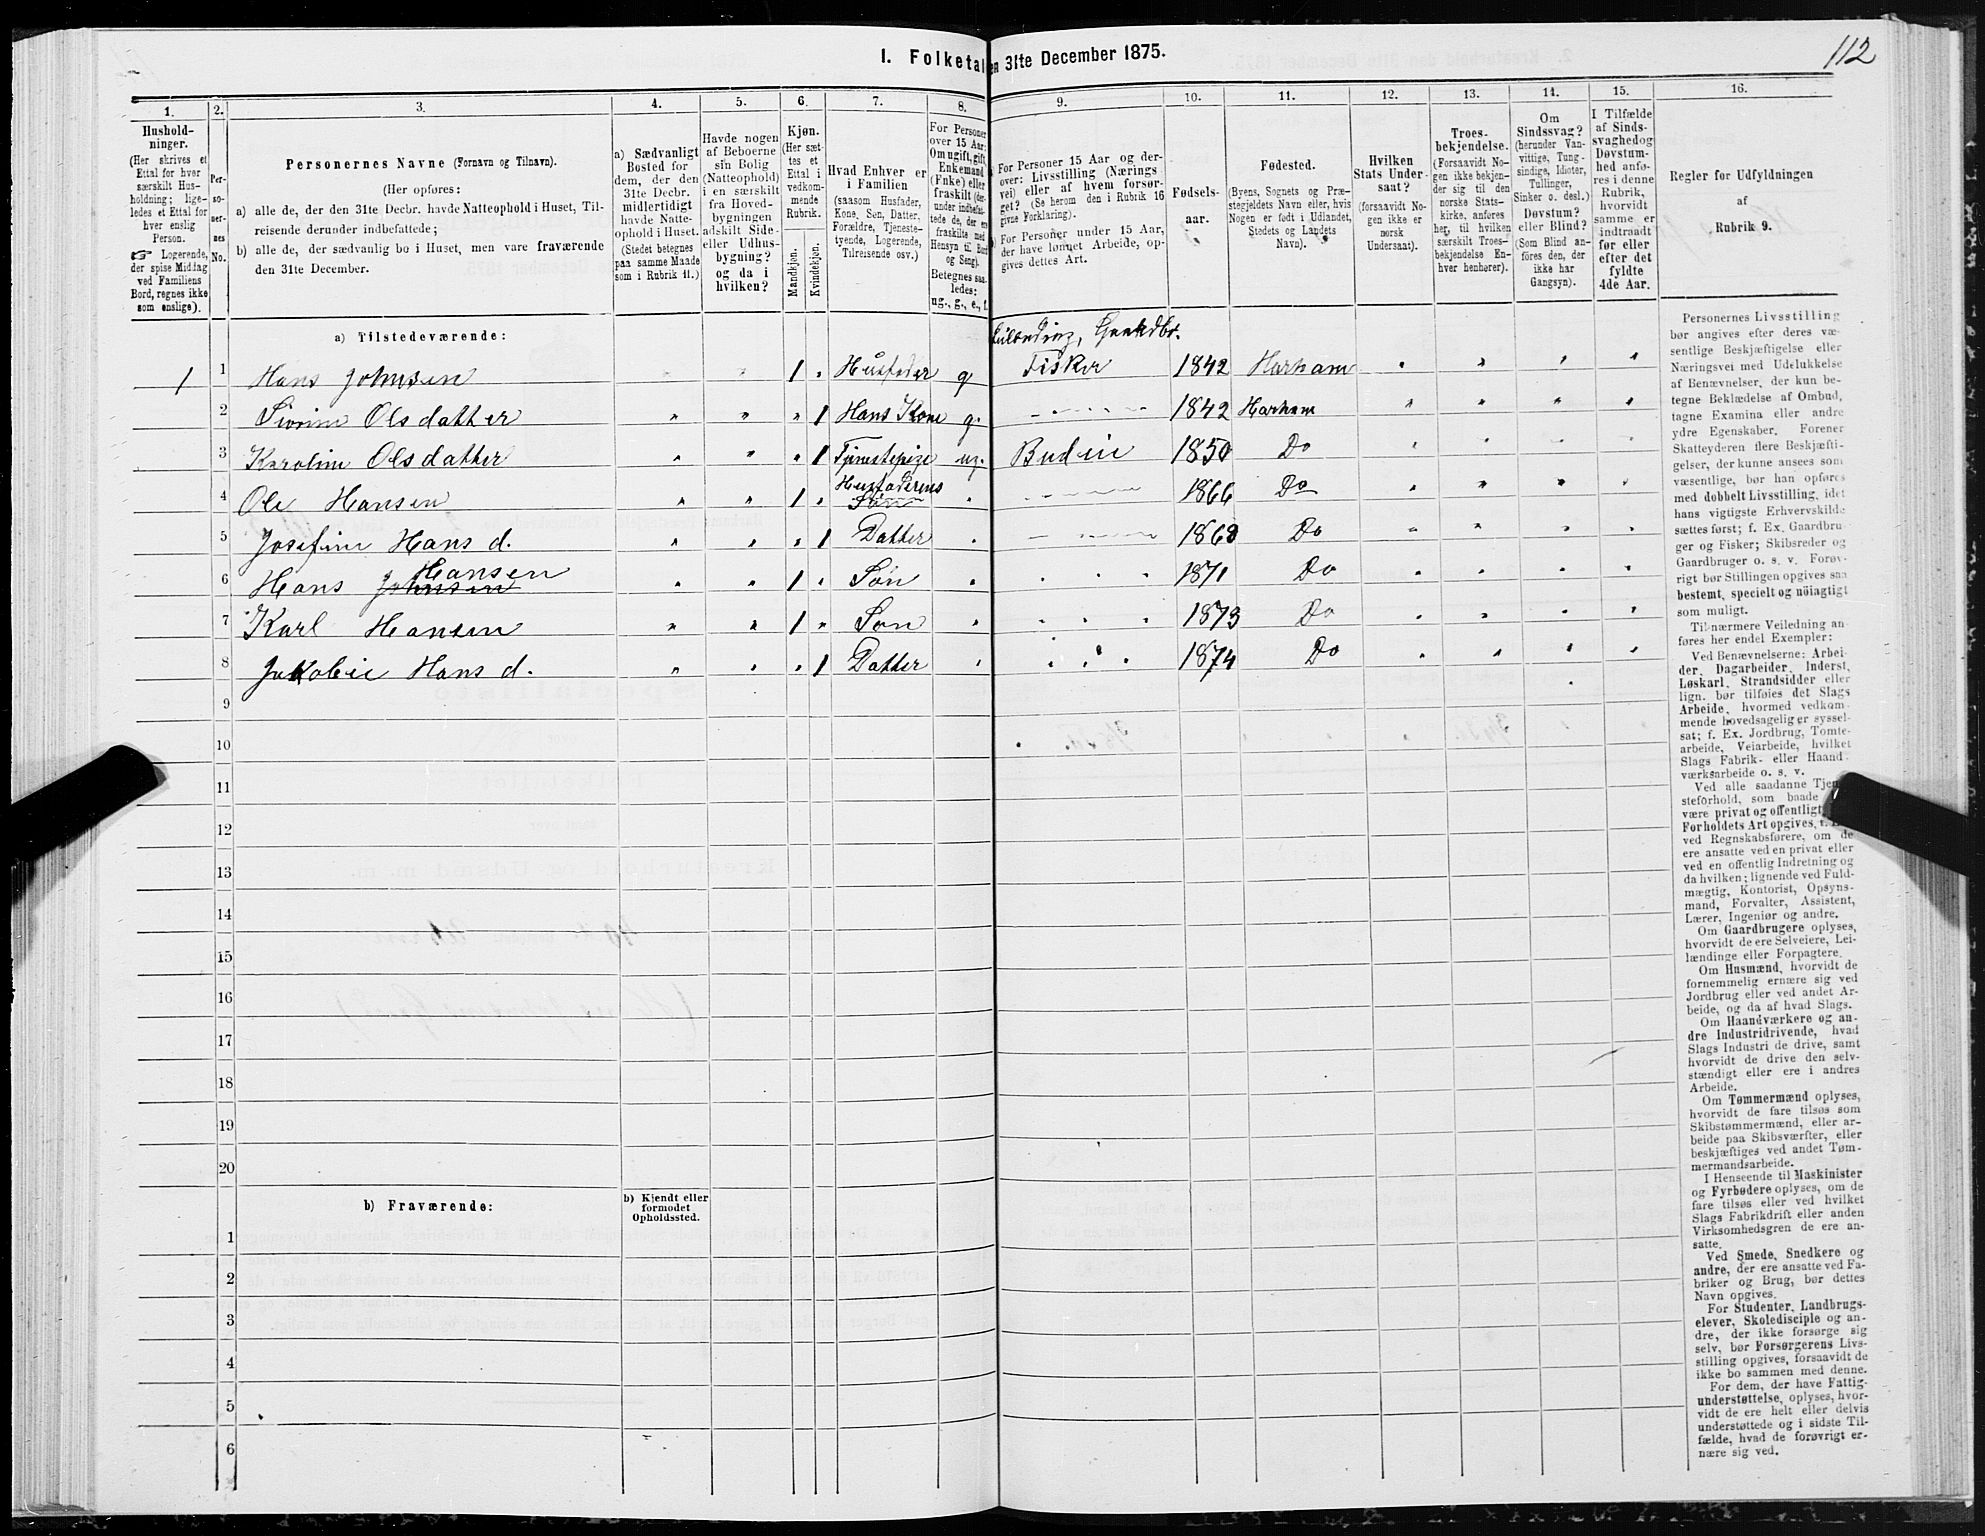 112
1. Folketal
en 31te December 1875.
1.
2.
3.
4.
5.
6.
7.
8.
9.
10.
11.
12.
13.
14.
15.
16.
Hushold-
ninger.
(Her skrives et
Ettal for hver
særskilt Hus-
holdning; lige-
ledes et Ettal for
hver enslig
Person.
☞ Logerende,
der spise Middag
ved Familiens
Bord, regnes ikke
som enslige).
Per-
so-
ner-
nes
No.
Personernes Navne (Fornavn og Tilnavn).
(Her opføres:
a) alle de, der den 31te Decbr. havde Natteophold i Huset, Til-
reisende derunder indbefattede;
b) alle de, der sædvanlig bo i Huset, men vare fraværende
den 31te December.
a) Sædvanligt
Bosted for
dem, der den
31te Decbr.
midlertidigt
havde Natte-
ophold i Huset.
(Stedet betegnes
paa samme Maade
som i Rubrik 11.)
Havde nogen
af Beboerne
sin Bolig
(Natteophold)
i en særskilt
fra Hoved-
bygningen
adskilt Side-
eller Udhus-
bygning?
og da i
hvilken?
Kjøn.
(Her sæt-
tes et
Ettal i
vedkom-
mende
Rubrik.
Mandkjøn.
Kvindekjøn.
Hvad Enhver er
i Familien
(saasom Husfader,
Kone, Søn, Datter,
Forældre, Tjeneste-
tyende, Logerende,
Tilreisende osv.)
For Personer
over 15 Aar:
Om ugift, gift,
Enkemand
(Enke) eller
fraskilt (der-
under indbefat-
tede de, der ere
fraskilte med
Hensyn til Bord
og Seng).
Betegnes saa-
ledes:
ug., g., e., f.
For Personer 15 Aar og der-
over: Livsstilling (Nærings
vei) eller af hvem forsør-
get? (Se herom den i Rubrik 16
givne Forklaring).
For Personer under 15 Aar,
der have lønnet Arbeide, op-
gives dettes Art.
Fødsels-
aar.
Fødested.
(Byens, Sognets og Præ-
stegjeldets Navn eller, hvis
Nogen er født i Udlandet,
Stedets og Landets
Navn).
Hvilken
Stats Under-
saat?
(forsaavidt No-
gen ikke er
norsk
Undersaat).
Troes-
bekjendelse.
(Forsaavidt No-
gen ikke bekjen-
der sig til den
norske Stats-
kirke, anføres
her, til hvilken
særskilt Troes-
bekjendelse En-
hver henhører).
Om
Sindssvag?
(herunder Van-
vittige, Tung-
sindige, Idioter,
Tullinger,
Sinker o. desl.)
Døvstum?
eller Blind?
(Som Blind an-
føres den, der
ikke har
Gangsyn).
I Tilfælde
af Sinds-
svaghed og
Døvstum-
hed anfø-
res i denne
Rubrik,
hvorvidt
samme er
indtraadt
før eller
efter det
fyldte
4de Aar.
Regler for Udfyldningen
af
Rubrik 9.
a) Tilstedeværende:
Leilænding, Gaardbr.
1 1 Hans Johnsen 1 Husfader g Fisker 1842 Harham
2 Sivrine Olsdatter 1 Hans Kone g. 1842 Harham
3 Karoline Olsdatter 1 Tjenestepige ug. Budeie 1850 Do
4 Ole Hansen 1 Husfaderens Søn 1866 Do
5 Josefine Hans d. 1 Datter 1868 Do
6 Hans Johnsen Hansen 1 Søn 1871 Do
7 Karl Hansen 1 Søn 1873 Do
8 Jakobie Hans d. 1 Datter 1874 Do
9
10
11
12
13
14
15
16
17
18
19
20
b) Fraværende:
b) Kjendt eller
formodet
Opholdssted.
1
2
3
4
5
6
Personernes Livsstilling
bør angives efter deres væ-
sentlige Beskjæftigelse eller
Næringsvei med Udelukkelse
af Benævnelser, der kun be-
tegne Beklædelse af Ombud,
tagne Examina eller andre
ydre Egenskaber. Forener
Skatteyderen flere Beskjæfti-
gelser, der kunne ansees som
væsentlige, bør han opføres
med dobbelt Livsstilling, idet
hans vigtigste Erhvervskilde
sættes først; f. Ex. Gaardbru-
ger og Fisker; Skibsreder og
Gaardbruger o. s. v. Forøv-
rigt bør Stillingen opgives saa
bestemt, specielt og nöiagtigt
som muligt.
Til nærmere Veiledning an-
føres her endel Exempler:
Ved Benævnelserne: Arbei-
der, Dagarbeider, Inderst,
Løskarl, Strandsidder eller
lign. bør tilføies det Slags
Arbeide, hvormed vedkom-
mende hovedsagelig er syssel-
sat; f. Ex. Jordbrug, Tomte-
arbeide, Veiarbeide, hvilket
Slags Fabrik- eller Haand-
værksarbeide o. s. v.
Ved alle saadanne Tjen-
steforhold, som baade
være privat og offentligt,
Forholdets Art opgives,
ved Regnskabsførere, om de
ere ansatte ved en privat eller
ved en offentlig Indretning og
da hvilken; lignende ved Fuld-
mægtig, Kontorist, Opsyns-
mand, Forvalter, Assistent,
Lærer, Ingeniør og andre.
Om Gaardbrugere oplyses,
hvorvidt de ere Selveiere, Lei-
lændinge eller Forpagtere.
Om Husmænd, hvorvidt de
fornemmelig ernære sig ved
Jordbrug eller ved andet Ar-
beide, og da af hvad Slags.
Om Haandværkere og an-
dre Industridrivende, hvad
Slags Industri de drive, samt
hvorvidt de drive den selv-
stændigt eller ere i andres
Arbeide.
Om Tømmermænd oplyses,
hvorvidt de fare tilsøs som
Skibstømmermænd, eller ar-
beide paa Skibsværfter, eller
beskjæftiges ved andet Tøm-
mermandsarbeide.
I Henseende til Maskinister
og Fyrbødere oplyses, om de
fare tilsøs eller ved hvilket
Slags Fabrikdrift eller anden
Virksomhedsgren de ere an-
satte.
Ved Smede, Snedkere og
andre, der ere ansatte ved Fa-
briker og Brug, bør dettes
Navn opgives.
For Studenter, Landbrugs-
elever, Skoledisciple og an-
dre, der ikke forsørge sig
selv, bør Forsørgerens Livs-
stilling opgives, forsaavidt de
ikke bo sammen med denne.
For dem, der have Fattig-
understøttelse, oplyses, hvor-
vidt de ere helt eller delvis
understøttede og i sidste Til-
fælde, hvad de forøvrigt er-
nære sig ved.